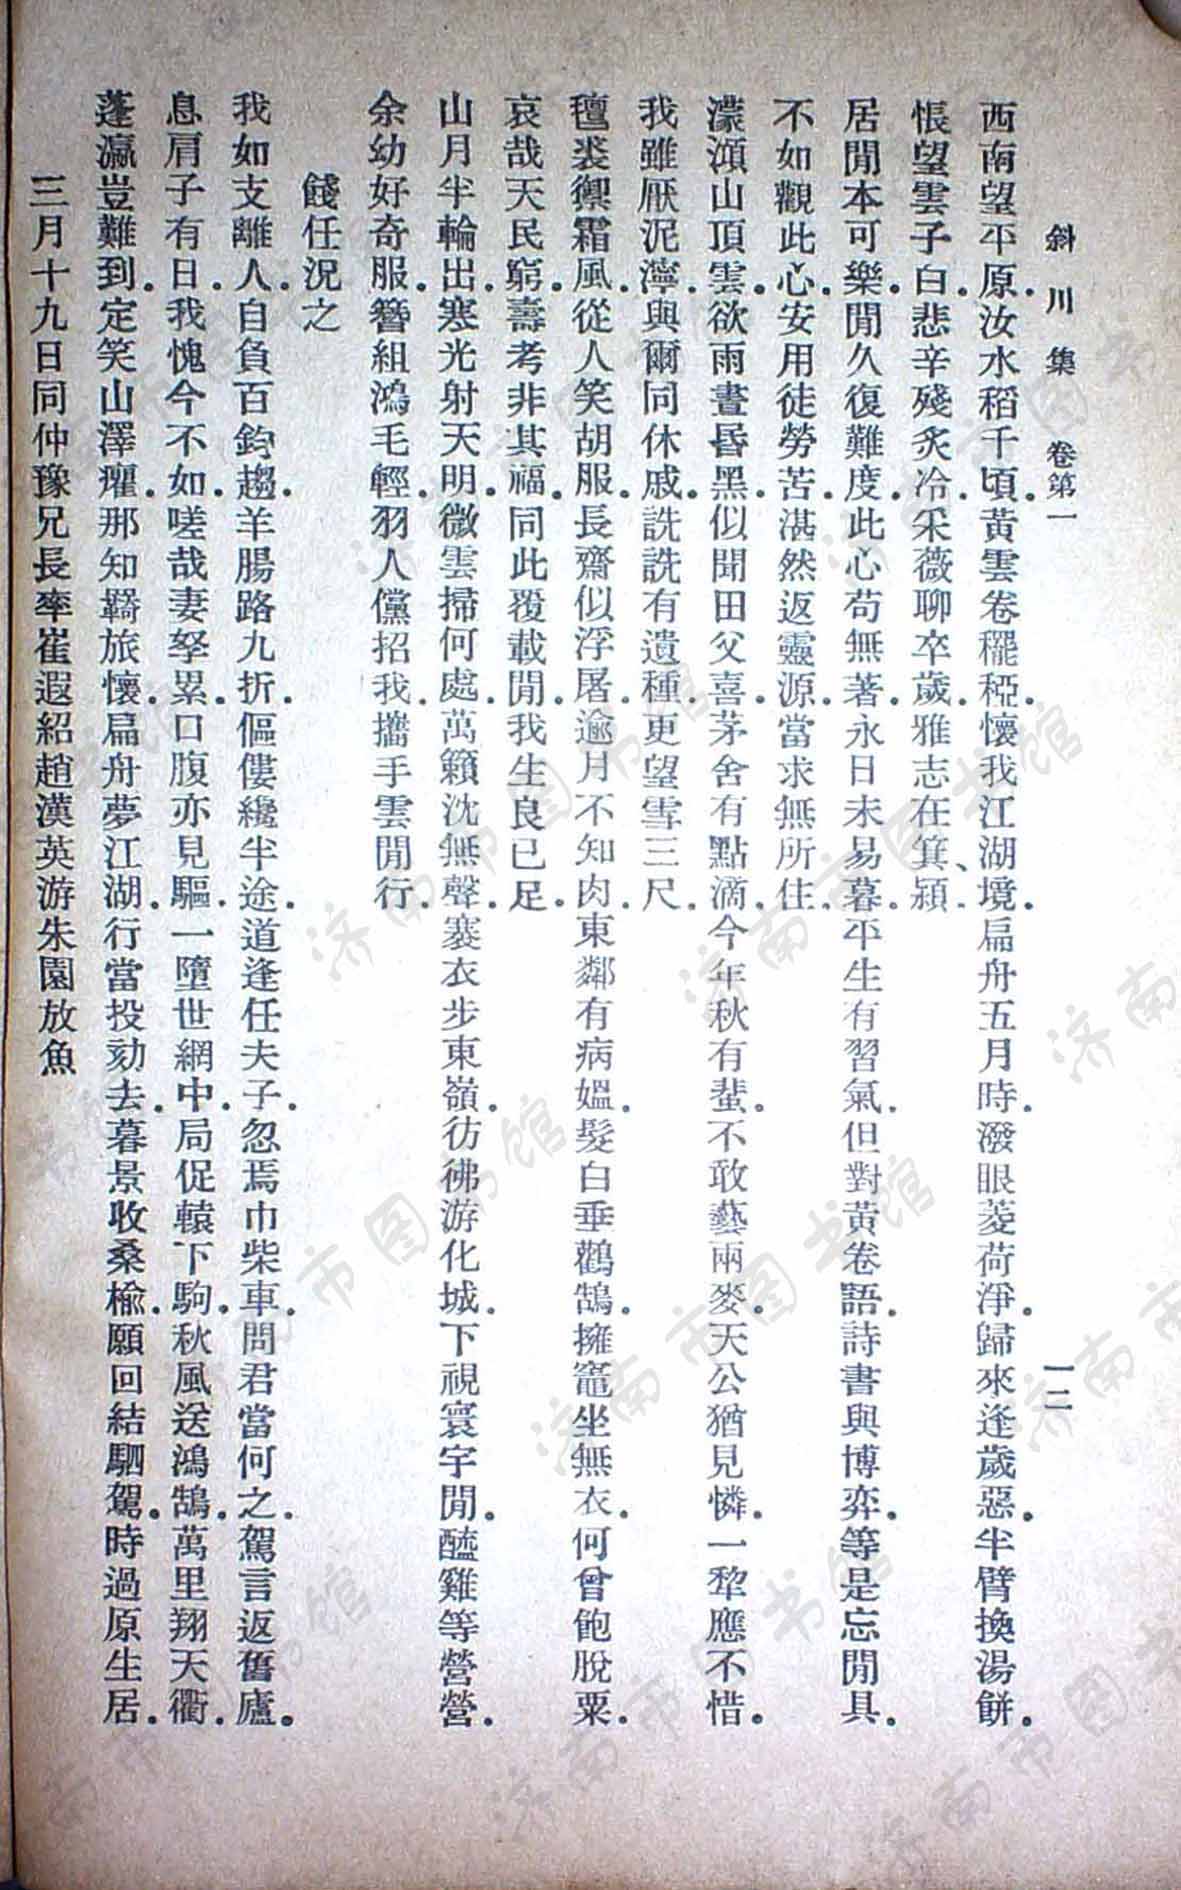 斜川集 卷第一 一二
西南望平原.汝水稻千頃.黃雲卷䆉稏.懷我江湖境.扁舟五月時.潑眼菱荷淨.歸來逢歲惡.半臂換湯餅.
悵望雲子白.悲辛殘炙冷.采薇聊卒歲.雅志在箕、潁.
居閒本可樂.閒久復難度.此心苟無著.永日未易暮.平生有習氣.但對黃卷語.詩書與博弈.等是忘閒具.
不如觀此心.安用徒勞苦.湛然返靈源.當求無所住.
濛澒山頂雲.欲雨晝昏黑.似聞田父喜.茅舍有點滴.今年秋有蜚.不敢藝兩麥.天公猶見憐.一犂應不惜.
我雖厭泥濘.與爾同休戚.詵詵有遺種.更望雪三尺.
氊裘禦霜風.從人笑胡服.長齋似浮屠.逾月不知肉.東鄰有病媼.髮白垂鸛鵠.擁竈坐無衣.何曾飽脫粟.
哀哉天民窮.壽考非其福.同此覆載閒.我生良已足.
山月半輪出.寒光射天明.微雲掃何處.萬籟沈無聲.褰衣步東嶺.彷彿游化城.下視寰宇閒.醯雞等營營.
余幼好奇服.簪組鴻毛輕.羽人儻招我.攜手雲閒行.
餞任況之
我如支離人.自負百鈞趨.羊腸路九折.傴僂纔半途.道逢任夫子.忽焉巾柴車.問君當何之.駕言返舊廬.
息肩子有日.我愧今不如.嗟哉妻孥累.口腹亦見驅.一墮世網中.局促轅下駒.秋風送鴻鵠.萬里翔天衢.
蓬瀛豈難到.定笑山澤癯.那知羈旅懷.扁舟夢江湖.行當投劾去.暮景收桑榆.願回結駟駕.時過原生居.
三月十九日同仲豫兄長率崔遐紹趙漢英游朱園放魚